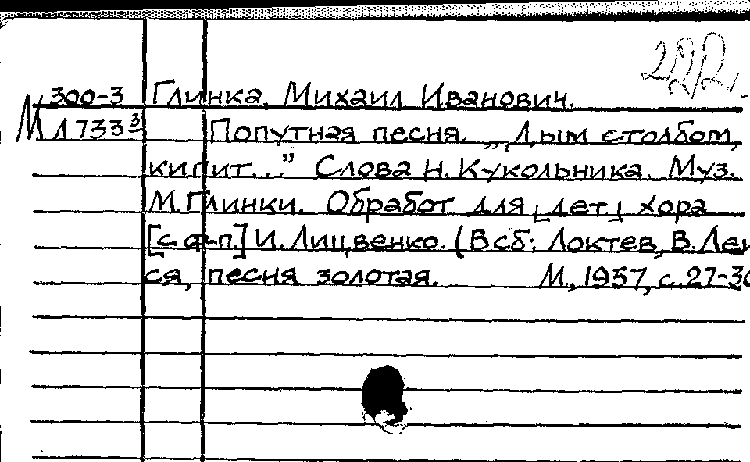 222
300-3 Глинка, Михаил Иванович.
М Л 733 3 Попутная песня. „Дым столбом,
кипит..." Слова Н. Кукольника. Муз.
М. Глинки. Обработ для [дет] хора
[с ф-п] И. Лицвенко. (В сб: Локтев, В. Лей
ся, песня золотая. М., 1957, с. 27-30